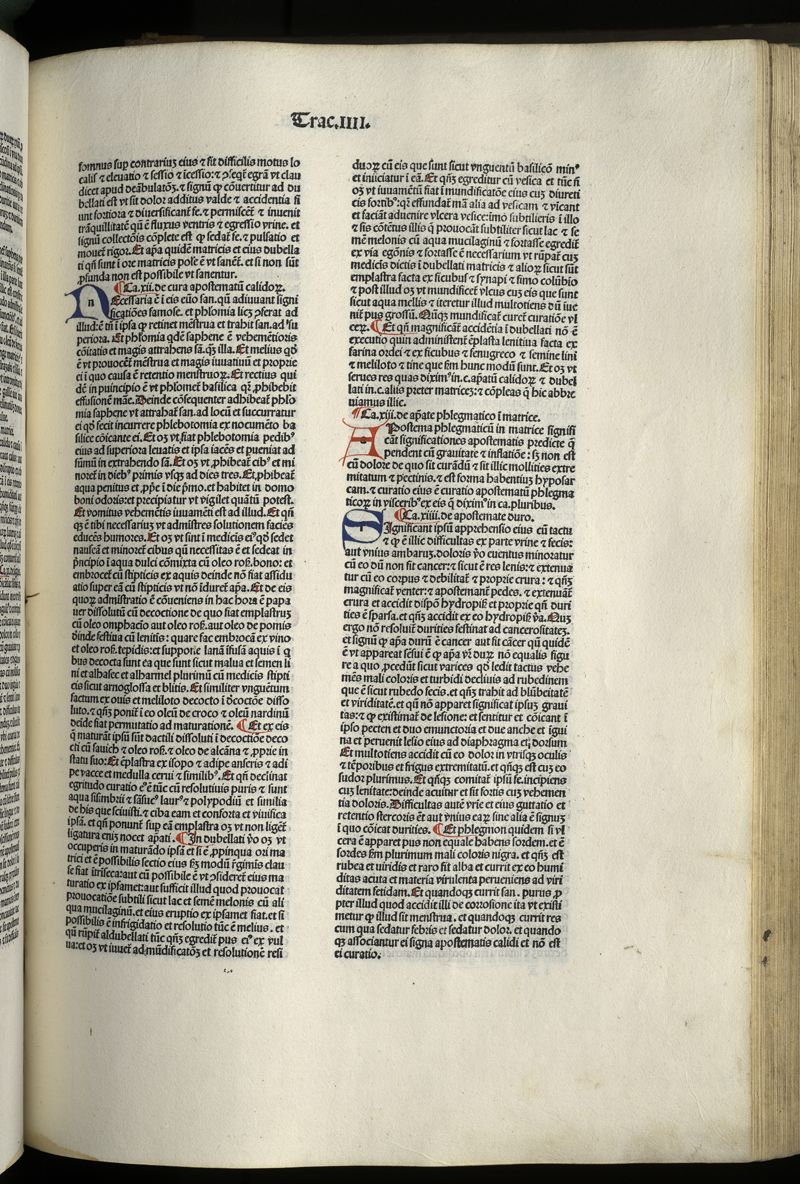 Trac.IIII.
somnus sup contrariuz eius ⁊ sit difficilis motus lo
calis ⁊ eleuatio ⁊ sessio ⁊ īcessio:⁊ ꝯseqt̄ egrā vt clau
dicet apud deābulatōꝫ. ⁊ signū ꝙ cōuertitur ad du
bellati est vt sit dolor additus valde ⁊ accidentia sī
unt fortiora ⁊ diuersificant̄ se.⁊ permiscēt ⁊ inuenit
trāquillitatē qn̄ ē fluxus ventris ⁊ egressio vrine. et
signū collectōis cōplete est ꝙ sedat̄ fe. ⁊ pulsatio et
mouet̄ rigor. Et apa quidē matricis et eius dubella
ti qn̄ sunt ī ore matricis posē ē vt sanēt. et si non sūt
ꝓfunda nen est possibile vt sanentur.
¶Ca.xii.de cura apostematū calidoꝝ.
Necessaria ē ī eis eūo san.qn̄ adiuuant signi
ficatiōes famose. et phlomia licꝫ ꝓserat ad
illud:ē tn̄ ī ipsa ꝙ retinet mēstrua et trahit san.ad su
periora. Et phlomia qdē saphene ē vehemētioris
cōitatis et magis attrahens sā.qꝫ illa. Et melius qd̄
ē vt prouocet̄ mēstrua et magis iuuatiuū et proprie
ei ī quo causa ē retentio menstruoꝝ. Et rectius qui
dē in puincipio ē vt phlomet̄ basilica qꝛ ꝓhibebit
effusionē māe. Deinde cōsequenter adhibeat̄ phlo
mia saphene vt attrahat̄ san.ad locū et succurratur
ei qd̄ fecit incurrere phlebotomia ex nocumēto ba
silice cōicante ei. Et oꝫ vt fiat phlebotomia pedibꝰ
eius ad superiora leuatis et ipsa iacēs et pueniat ad
sūmū in extrahendo sā. Et oꝫ vt ꝓhibeat̄ cibꝰ et mi
noret̄ in diebꝰ primis vsqꝫ ad dies tres. Et ꝓhibeat̄
aqua penitus et ꝓpe ī die pmo.et habitet in domo
boni odoris:et precipiatur vt vigilet quātū potest.
Et vomitus vehemētis iuuamēti est ad illud. Et qn̄
qꝫ ē tibi necessariuꝫ vt admistres solutionem faciēs
educēs humores. Et oꝫ vt sint ī medicis eiꝰ qd̄ sedet
nauseā et minoret̄ cibus qn̄ necessitas ē et sedeat in
pncipio ī aqua dulci cōmixta cū oleo roꝝ.bono: et
embrocet̄ cū stipticis ex aquis deinde nō fiat assidu
atio super eā cū stipticis vt nō īduret̄ apa. Et de eis
quoꝝ admistratio ē cōueniens in hac hora ē papa
uer dissolutū cū decoctione de quo fiat emplastruꝫ
cū oleo omphacio aut oleo roꝝ.aut oleo de pomis
dīnde festiua cū lenitis: quare fac embrocā ex vino
et oleo roꝝ.tepidis:et suppone lanā ifusā aquis ī q
bus decocta sunt ea que sunt sicut malua et semen li
ni et albasee et albarmel plurimū cū medicis stipti
cis sicut arnoglossa et blitis. Et similiter vnguentum
factum ex ouis et meliloto decocto ī decoctōe disso
luto.⁊ qn̄ꝫ ponit̄ ī eo oleū de croco ⁊ oleū nardinū
deīde fiat permutatio ad maturationē. ¶Et ex eis
ꝙ maturāt ipsū sūt dactili dissoluti ī decoctiōe deco
cti cū sauich ⁊ oleo roꝝ.⁊ oleo de alcāna ⁊ ꝓprie in
statu suo: Et ēplastra ex isopo ⁊ adipe anseris ⁊ adi
pe vacce et medulla cerui ⁊ similibꝰ. Et qn̄ declinat
egritudo curatio eꝰ ē tūc cū resolutiuis puris ⁊ sunt
aqua sisimbrii ⁊ sāsuci laurꝰ ⁊ polypodiū et similia
de his que sciuisti.⁊ ciba eam et conforta et viuifica
ipsā. et qn̄ ponunt̄ sup eā emplastra oꝫ vt non liget̄
ligatura eniꝫ nocet apati. ¶In dubellati v̄o oꝫ vt
occuperis in maturādo ipsā et si ē ꝓpinqua ori ma
trici et ē possibilis sectio eius fꝫ modū r̄gimis clau
se fiat ītrīseca:aut cū possibile ē vt ꝓsideret̄ eius ma
turatio ex ipsamet:aut sufficit illud quod prouocat
prouocatiōe subtili sicut lac et semē melonis cū ali
qua mucilaginū.et eius eruptio ex ipsamet fiat.et si
possibilis ē infrigidatio et resolutio tūc ē melius. et
qn̄ rūpit̄ aldubellati tūc qn̄ꝫ egredit̄ pus eiꝰ ex vul
ua:et oꝫ vt iuuet̄ ad mūdificatōꝫ et resolutionē resi
duoꝝ cū eis que sunt sicut vnguentū basilicō minꝰ
et iniiciatur ī eā. Et qn̄ꝫ egreditur cū vesica et tūc si
oꝫ vt iuuamētū fiat ī mundificatōe eius cuꝫ diureti
cis fortibꝰ:qꝛ effundāt mā alia ad vesicam ⁊ vīcant
et faciāt aduenire vlcera vesice:imo subtilieris ī illo
⁊ sis cōtētus illis ꝙ prouocāt subtiliter sicut lac ⁊ se
mē melonis cū aqua mucilaginū ⁊ fortasse egredit̄
ex via egōnis ⁊ fortasse ē necessarium vt rūpat̄ cuꝫ
medicis dictis ī dubellati matricis ⁊ alioꝝ sicut sūt
emplastra facta ex ficubus ⁊ synapi ⁊ fimo colūbio
⁊ post illud oꝫ vt mundificet̄ vlcus cuꝫ eis que sunt
sicut aqua mellis ⁊ iteretur illud multotiens dū iue
nit̄ pus grossū. Nūqꝫ mundificat̄ curet̄ curatiōe vl
ceꝝ. ¶Et qn̄ magnificāt̄ accidētia ī dubellati nō ē
executio quin administrent̄ ēplasta lenitiua facta ex
farina ordei ⁊ ex ficubus ⁊ fenugreco ⁊ semine lini
⁊ meliloto ⁊ tine que fm̄ hunc modū sunt. Et oꝫ vt
serues res quas diximꝰ in.c.apatū calidoꝝ ⁊ dubel
lati in.c.aliis preter matriceꝫ:⁊ cōpleas ꝙ hic abbre
uiamus illic.
¶Ca.xiii.de apate phlegmatico ī matrice.
Apostema phlegmaticū in matrice signifi
cāt significationes apostematis predicte ꝙ
pendent cū grauitate ⁊ inflatiōe: sꝫ non est
cū dolore de quo sit curādū ⁊ sit illic mollities extre
mitatum ⁊ pectinis.⁊ est forma habentius hyposar
cam.⁊ curatio eius ē curatio apostematū phlegma
ticoꝝ in visceribꝰ ex eis ꝙ diximꝰ in ca.pluribus.
¶Ca.xiiii.de apostemate duro.
Significant ipsū apprehensio eius cū tactu
⁊ ꝙ ē illic difficultas ex parte vrine ⁊ fecis:
aut vnius ambaruꝫ.doloris v̄o euentus minoratur
cū eo dū non fit cancer:⁊ sicut ē res lenis:⁊ extenua
tur cū eo corpus ⁊ debilitat̄ ⁊ proprie crura: ⁊ qn̄ꝫ
magnificat̄ venter:⁊ apostemant̄ pedes. ⁊ extenuāt̄
crura et accidit dispō hydropiſ et proprie qn̄ duri
ties ē sparsa.et qn̄ꝫ accidit ex eo hydropiſ va. Nuꝫ
ergo nō resoluit̄ durities festinat ad cancerositateꝫ.
et signū ꝙ apa durū ē cancer aut fit cācer qn̄ quidē
ē vt appareat sēsui ē ꝙ apa vr̄ duꝝ nō equalis figu
re a quo ꝓcedūt sicut varices qd̄ ledit tactus vehe
mēs mali coloris et turbidi decliuis ad rubedinem
que ē sicut rubedo fecis.et qn̄ꝫ trahit ad blūbeitatē
et viriditatē.et qn̄ nō apparet significat ipsuꝫ graui
tas:⁊ ꝙ existimat̄ de lesione: et sentitur et cōicant ī
ipso pecten et duo emunctoria et due anche et igui
na et peruenit lesio eius ad diaphragma et dorsum
Et multotiens accidit cū eo dolor in vtrisqꝫ oculis
⁊ tēporibus et frigus extremitatū.et qn̄qꝫ est cuꝫ eo
sudoꝛ plurimus. Et qn̄qꝫ comitat̄ ipsū fe.incipiens
cuꝫ lenitate:deinde acuitur et fit fortis cuꝫ vehemen
tia doloris. Difficultas autē vrīe et eius guttatio et
retentio stercoris ēt aut vnius eaꝝ sine alia ē signuꝫ
ī quo cōicat durities. ¶Et phlegmon quidem si vl
cera ē apparet pus non equale habens sordem.et ē
sordes fm̄ plurimum mali coloris nigra. et qn̄ꝫ est
rubea et viridis et raro fit alba et currit ex eo humi
ditas acuta et materia virulenta perueniens ad viri
ditatem fetidam. Et quandoqꝫ currit san. purus ꝓ
pter illud quod accidit illi de corrosione ita vt existi
metur ꝙ illud fit menstrua. et quandoqꝫ currit res
cum qua sedatur febris et sedatur dolor. et quando
qꝫ associantur ei signa apostematis calidi et nō est
ei curatio.